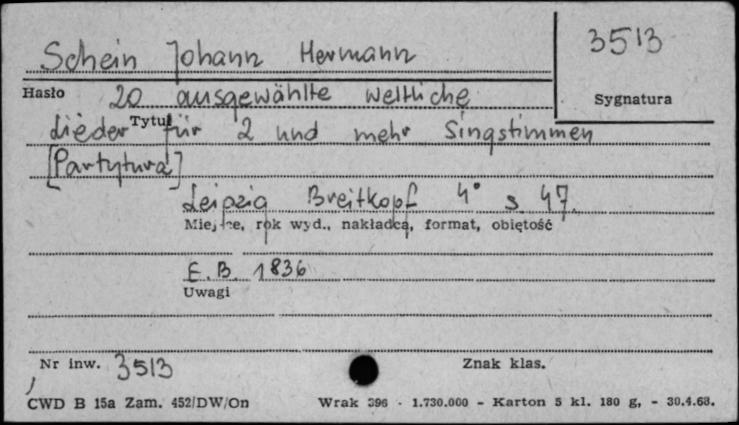 Schein Johann Hermann
3513
Hasło
20 ausgewählte weltliche
Sygnatura
Tytuł
Lieder für 2 und mehr Singstimmen
[Partytura]
Leipzig Breitkopf 4° s. 47.
Miejsce, rok wyd., nakładca, format, objętość
E.B. 1836
Uwagi
Nr inw. 3513
Znak klas.
CWD B 15a Zam. 452/DW/On
Wrak 396 - 1.730.000 - Karton 5 kl. 180 g, - 30.4.68.